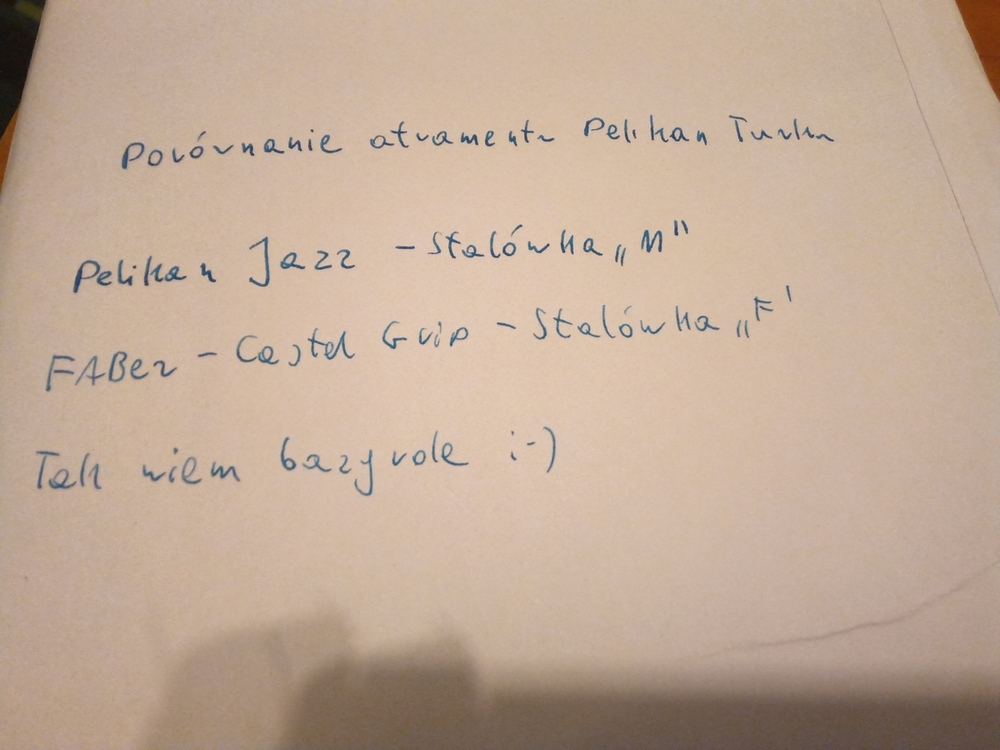 Porównanie atramentu Pelikan Turkus
Pelikan Jazz - Stalówka „M"
FABER - Castel Grip - Stalówka „F'
Tak wiem bazgrole ;-)